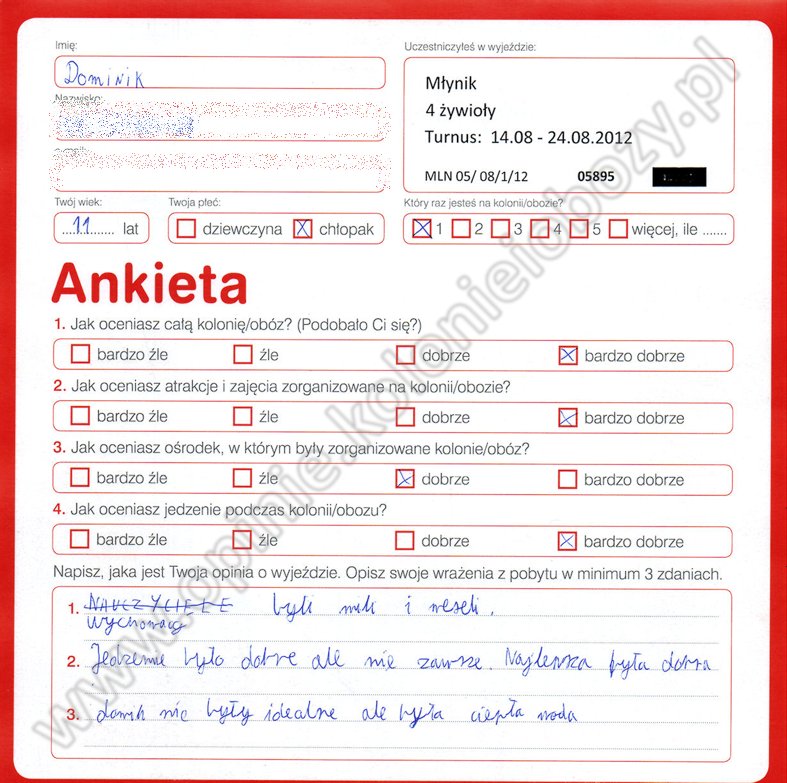 Imię:
Uczestniczyłeś w wyjeździe:
Dominik
Młynik
Nazwisko:
4 żywioły
Turnus: 14.08 - 24.08.2012
MLN 05/ 08/1/12 05895
Twój wiek:
Twoja płeć:
Który raz jesteś na kolonii/obozie?
....11....... lat
dziewczyna
chłopak
1 2 3 4 5 więcej, ile .......
Ankieta
1. Jak oceniasz całą kolonię/obóz? (Podobało Ci się?)
bardzo źle źle dobrze bardzo dobrze
2. Jak oceniasz atrakcje i zajęcia zorganizowane na kolonii/obozie?
bardzo źle źle dobrze bardzo dobrze
3. Jak oceniasz ośrodek, w którym były zorganizowane kolonie/obóz?
bardzo źle źle dobrze bardzo dobrze
4. Jak oceniasz jedzenie podczas kolonii/obozu?
bardzo źle źle dobrze bardzo dobrze
Napisz, jaka jest Twoja opinia o wyjeździe. Opisz swoje wrażenia z pobytu w minimum 3 zdaniach.
1. NAUCZYCIELE byli mili i weseli.
wychowawcy
2. Jedzenie było dobre ale nie zawsze. Najlepsza była
3. domki nie były idealne ale była ciepła woda
www.opinie.kolonieiobozy.pl